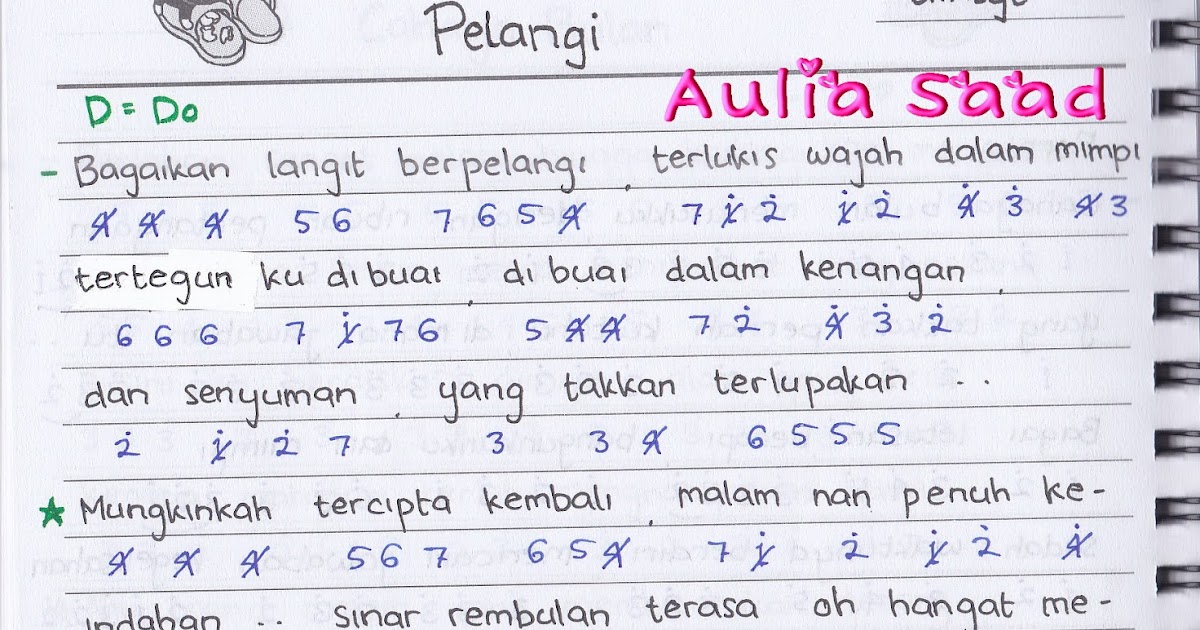 Pelangi
D = Do
Aulia Saad
- Bagaikan langit berpelangi, terlukis wajah dalam mimpi
4̸ 4̸ 4̸ 5 6 7 6 5 4̸ 7 1̸̇ 2̇ 1̸̇ 2̇ 4̸̇ 3̇ 4̸ 3
tertegun ku dibuai, dibuai dalam kenangan,
6 6 6 7 1̸̇ 7 6 5 4̸ 4̸ 7 2̇ 4̸̇ 3̇ 2̇
dan senyuman, yang takkan terlupakan ...
2̇ 1̸̇ 2̇ 7 3 3 4̸ 6 5 5 5
★ Mungkinkah tercipta kembali, malam nan penuh ke-
4̸ 4̸ 4̸ 5 6 7 6 5 4̸ 7 1̸̇ 2̇ 1̸̇ 2̇ 4̸̇
indahan ... Sinar rembulan terasa oh hangat me-